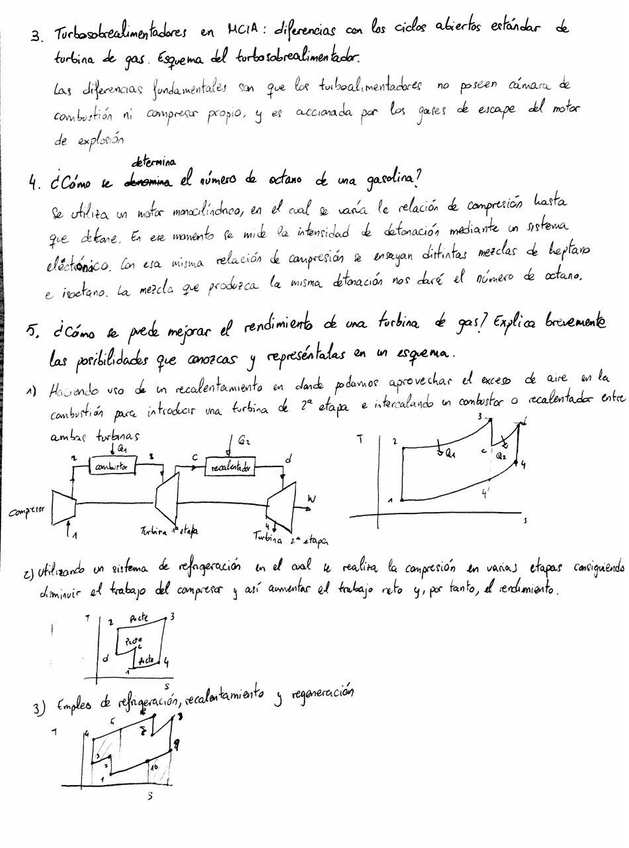 3. Turbosobrealimentadores en MCIA: diferencias con los ciclos abiertos estándar de
turbina de gas. Esquema del turbosobrealimentador.
Las diferencias fundamentales son que los turboalimentadores no poseen cámara de
combustión ni compresor propio, y es accionada por los gases de escape del motor
de explosión
determina
4. ¿Cómo se denomina el número de octano de una gasolina?
Se utiliza un motor monocilíndrico, en el cual se varía la relación de compresión hasta
que detone. En ese momento se mide la intensidad de detonación mediante un sistema
electrónico. Con esa misma relación de compresión se ensayan distintas mezclas de heptano
e isoctano. La mezcla que produzca la misma detonación nos dará el número de octano.
5. ¿Cómo se puede mejorar el rendimiento de una turbina de gas? Explica brevemente
las posibilidades que conozcas y represéntalas en un esquema.
1) Haciendo uso de un recalentamiento en donde podamos aprovechar el exceso de aire en la
combustión para introducir una turbina de 2ª etapa e intercalando un combustor o recalentador entre
ambas turbinas
Q1 Q2
2 combustor 3 c recalentador d
compresor 1 Turbina 1ª etapa 4 Turbina 2ª etapa W
T 2 3 Q1 c Q2 d 4 4' 1 s
2) Utilizando un sistema de refrigeración en el cual se realiza la compresión en varias etapas consiguiendo
disminuir el trabajo del compresor y así aumentar el trabajo neto y, por tanto, el rendimiento.
T 2 Pcte 3
Pcte c
d 1 Pcte 4
s
3) Empleo de refrigeración, recalentamiento y regeneración
T 4 5 7 8
3 2 9
1 10
S